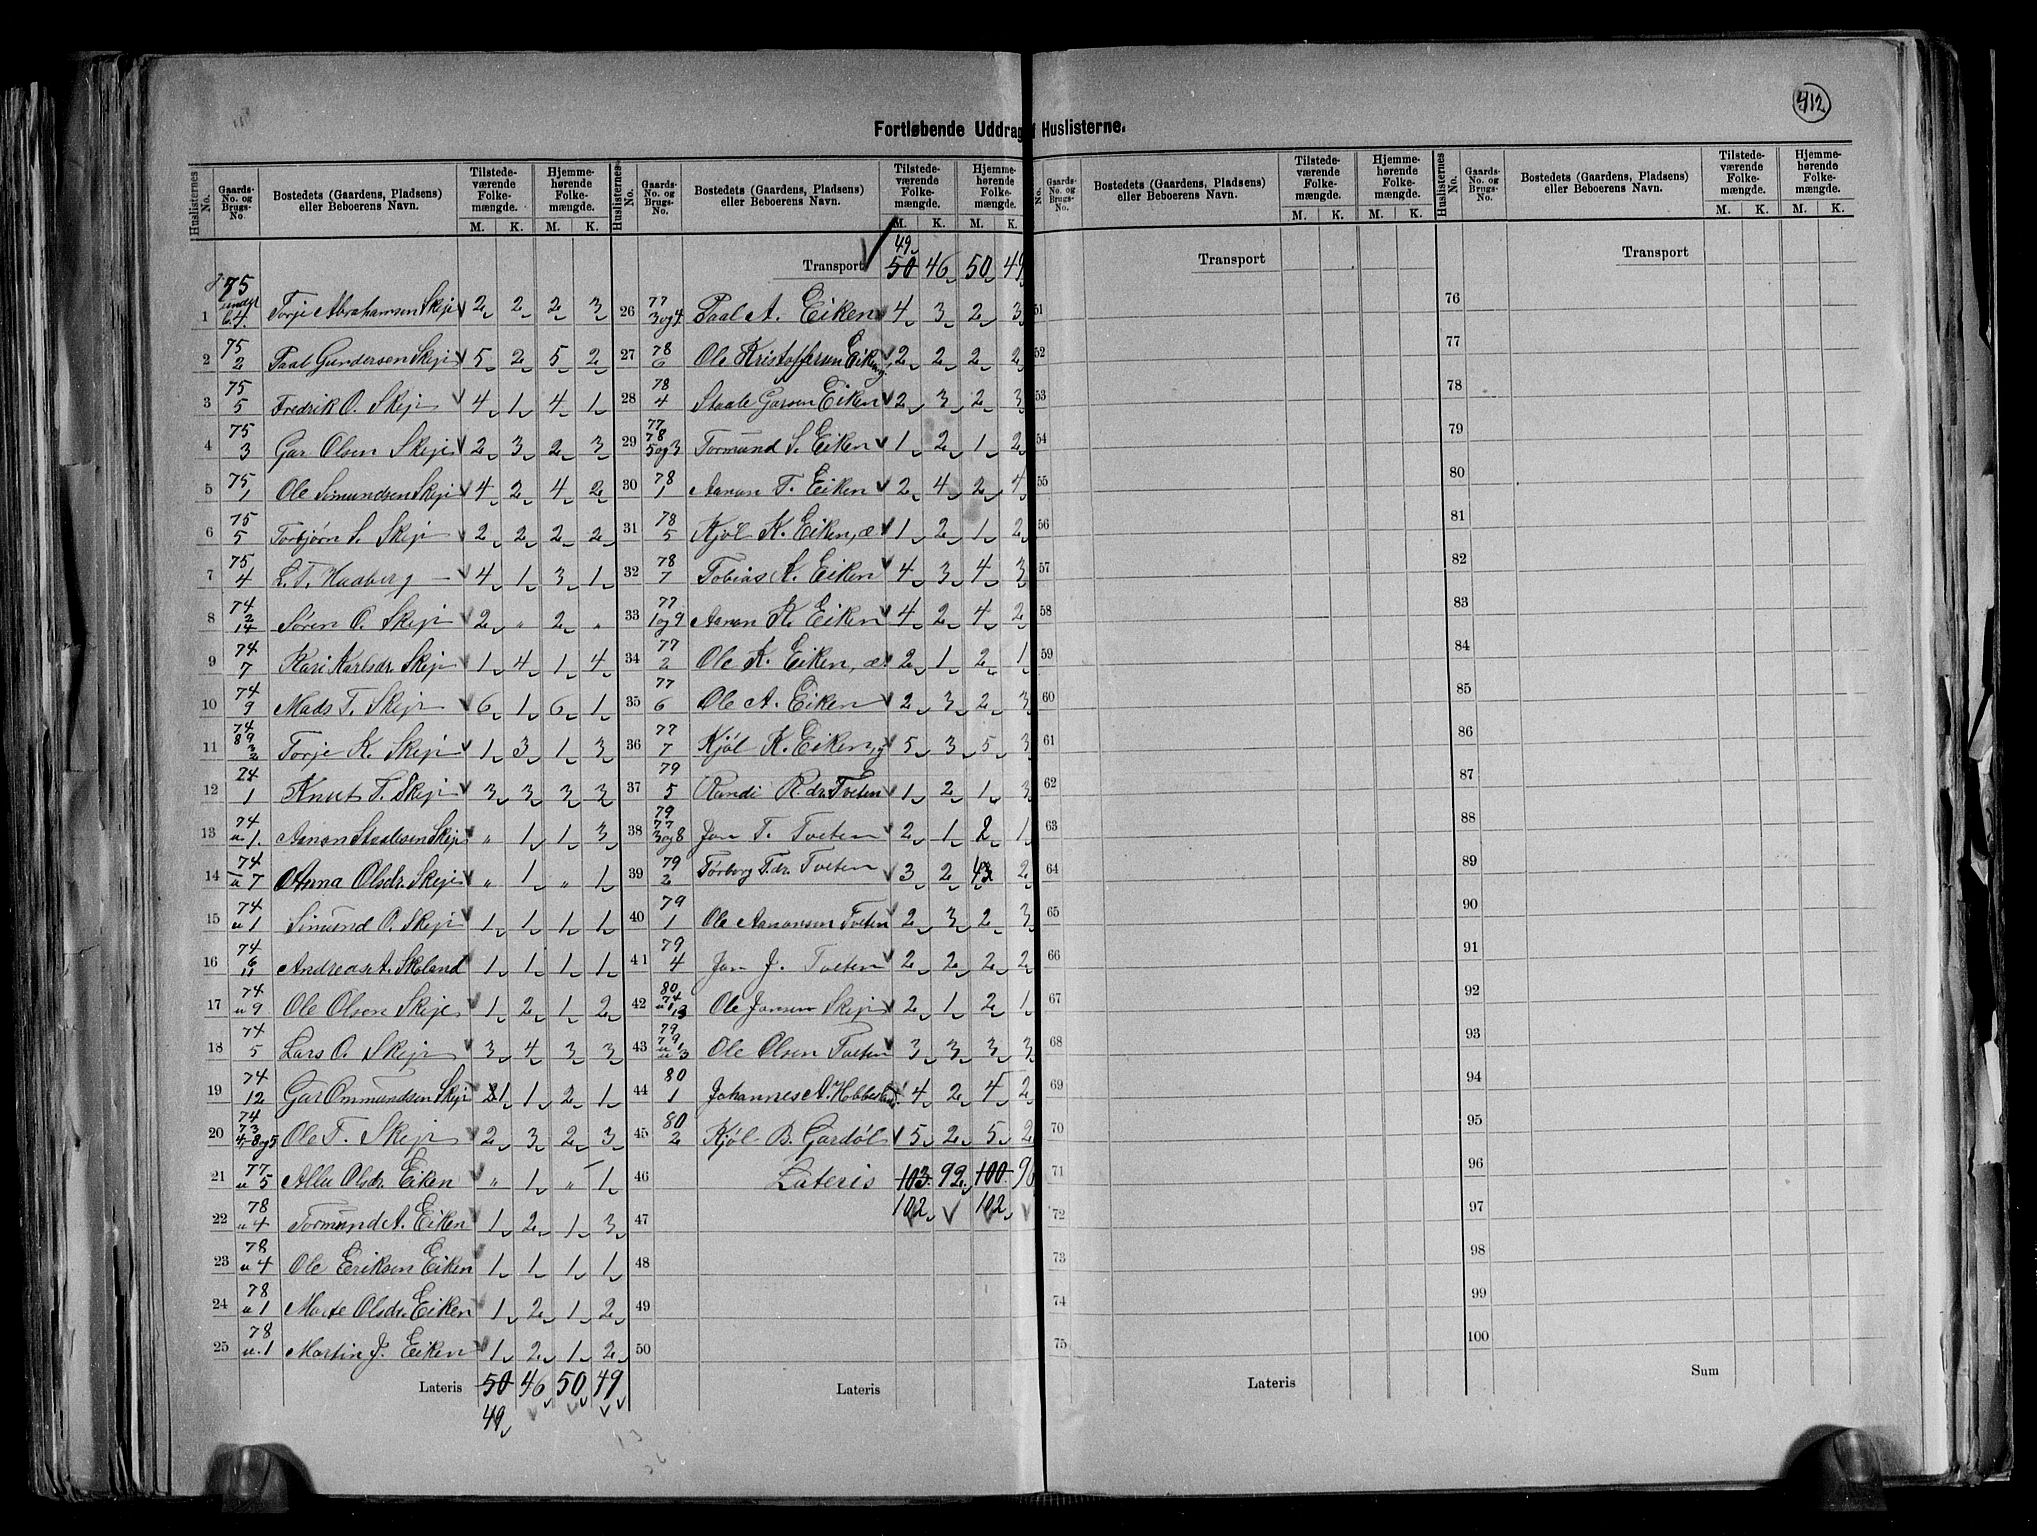 412
Fortløbende Uddrag Huslisterne.
Huslisternes No. Gaards-No. og Brugs-No. Bostedets (Gaardens, Pladsens) eller Beboerens Navn. Tilstedeværende Folkemængde. M. K. Hjemmehørende Folkemængde. M. K.
1 75 64 Torje Abrahamsen Skeje 2 2 2 3
2 75 2 Paal Gundersen Skeje 5 2 5 2
3 75 5 Fredrik O. Skeje 4 1 4 1
4 75 3 Gar Olsen Skeje 2 3 2 3
5 75 1 Ole Simundsen Skeje 4 2 4 2
6 75 5 Torbjørn S. Skeje 2 2 2 2
7 75 4 L. T. Haaberg 4 1 3 1
8 74 2 14 Søren O. Skeje 2 " 2 "
9 74 7 Kari Karlsdr. Skeje 1 4 1 4
10 74 9 Mads T. Skeje 6 1 6 1
11 74 89 3 2 Torje K. Skeje 1 3 1 3
12 24 1 Knut T. Skeje 3 3 3 3
13 74 u. 1. Aanon Staalesen Skeje " 1 1 3
14 74 u 7 Anna Olsdr. Skeje " 1 " 1
15 74 u 1 Simund O. Skeje 1 1 1 1
16 74 6 11 Andreas A. Skoland 1 1 1 1
17 74 u 9 Ole Olsen Skeje 1 2 1 2
18 74 5 Lars O. Skeje 3 4 3 3
19 74 12 Gar Ommundsen Skeje 1 1 2 1
20 74 73 4-8og5 Ole T. Skeje 2 3 2 3
21 77 u 5 Olsdr. Eiken " 1 " 1
22 78 u 4 Tormund A. Eiken 1 2 1 3
23 78 u 4 Ole Eriksen Eiken 1 1 1 1
24 78 u 1 Marte Olsdr. Eiken 1 2 1 2
25 78 u. 1 Martin J. Eiken 1 2 1 2
Lateris 50 46 50 49
49
Huslisternes No. Gaards-No. og Brugs-No. Bostedets (Gaardens, Pladsens) eller Beboerens Navn. Tilstedeværende Folkemængde. M. K. Hjemmehørende Folkemængde. M. K.
49
Transport 50 46 50 49
26 77 3og4 Paal A. Eiken 4 3 2 3
27 78 6 Ole Kristoffersen Eiken 2 2 2 2
28 78 4 Staale Garsen Eiken 2 3 2 3
29 77 78 5og3 Tormund S. Eiken 1 2 1 2
30 78 1 Aanon T. Eiken 2 4 2 4
31 78 5 Kjøl K. Eiken, æ 1 2 1 2
32 78 7 Tobias K. Eiken 4 3 4 3
33 77 1og9 Aanon K. Eiken 4 2 4 2
34 77 2 Ole K. Eiken, æ. 2 1 2 1
35 77 6 Ole A. Eiken 2 3 2 3
36 77 7 Kjøl K. Eiken, y 5 3 5 3
37 79 5 Randi R. dr. Tveten 1 2 1 3
38 79 77 3og8 Jon T. Tveten 2 1 2 1
39 79 2 Tørborg T.dr. Tveten 3 2 3 2
40 79 1 Ole Aanonsen Tveten 2 3 2 3
41 79 4 Jon J. Tveten 2 2 2 2
42 80 74 Ole Jonsen Skeje 2 1 2 1
43 79 79 1 u 3 Ole Olsen Tveten 3 3 3 3
44 80 1 Johannes A. Hobbesland 4 2 4 2
45 80 2 Kjøl B. Gardøl 5 2 5 2
46 Lateris 103 92 100
47 102 102
48
49
50
Lateris
No. Gaards-No. og Brugs-No. Bostedets (Gaardens, Pladsens) eller Beboerens Navn. Tilstedeværende Folkemængde. M. K. Hjemmehørende Folkemængde. M. K.
Transport
51
52
53
54
55
56
57
58
59
60
61
62
63
64
65
66
67
68
69
70
71
72
73
74
75
Lateris
Huslisternes No. Gaards-No. og Brugs-No. Bostedets (Gaardens, Pladsens) eller Beboerens Navn. Tilstedeværende Folkemængde. M. K. Hjemmehørende Folkemængde. M. K.
Transport
76
77
78
79
80
81
82
83
84
85
86
87
88
89
90
91
92
93
94
95
96
97
98
99
100
Sum